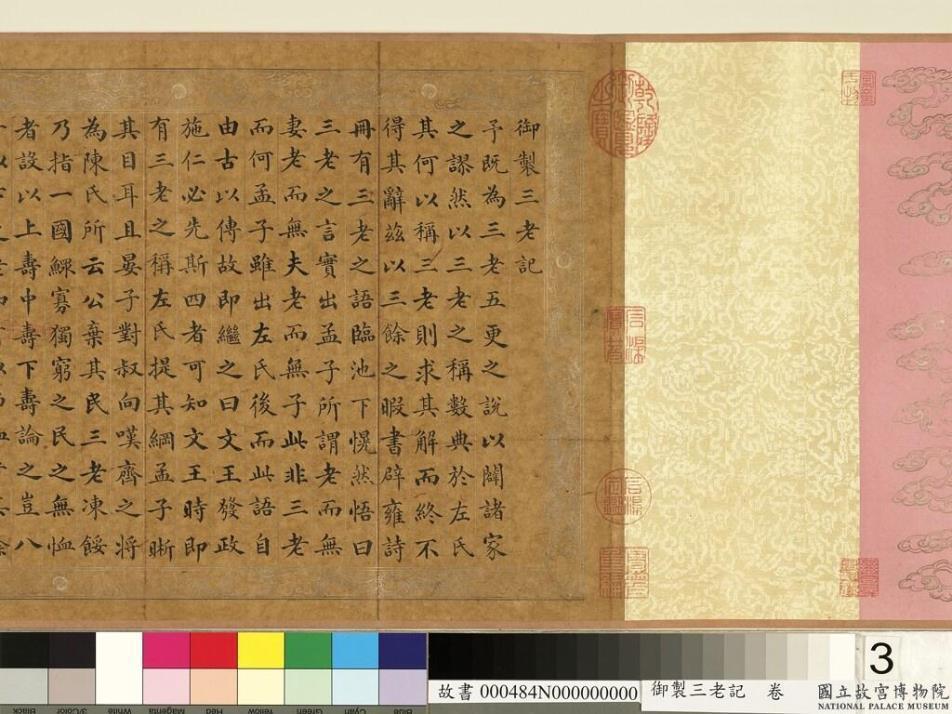 御製三老記
予既為三老五更之說以闢諸家
之謬然以三老之稱數典於左氏
其何以稱三老則求其解而終不
得其辭茲以三餘之暇書辟雍詩
冊有三老之語臨池下愰然悟曰
三老之言實出孟子所謂老而無
妻老而無夫老而無子此非三老
而何孟子雖出左氏後而此語自
由古以傳故即繼之曰文王發政
施仁必先斯四者可知文王時即
有三老之稱左氏提其綱孟子晣
其目耳且晏子對叔向嘆齊之將
為陳氏所云公棄其民三老凍餒
乃指一國鰥寡獨窮之民之無恤
者設以上壽中壽下壽論之豈八
乾隆御覽之寶
3
故書 000484N000000000
御製三老記 卷
國立故宮博物院
NATIONAL PALACE MUSEUM
Black 3/Color White Magenta Red Yellow Green Cyan Blue